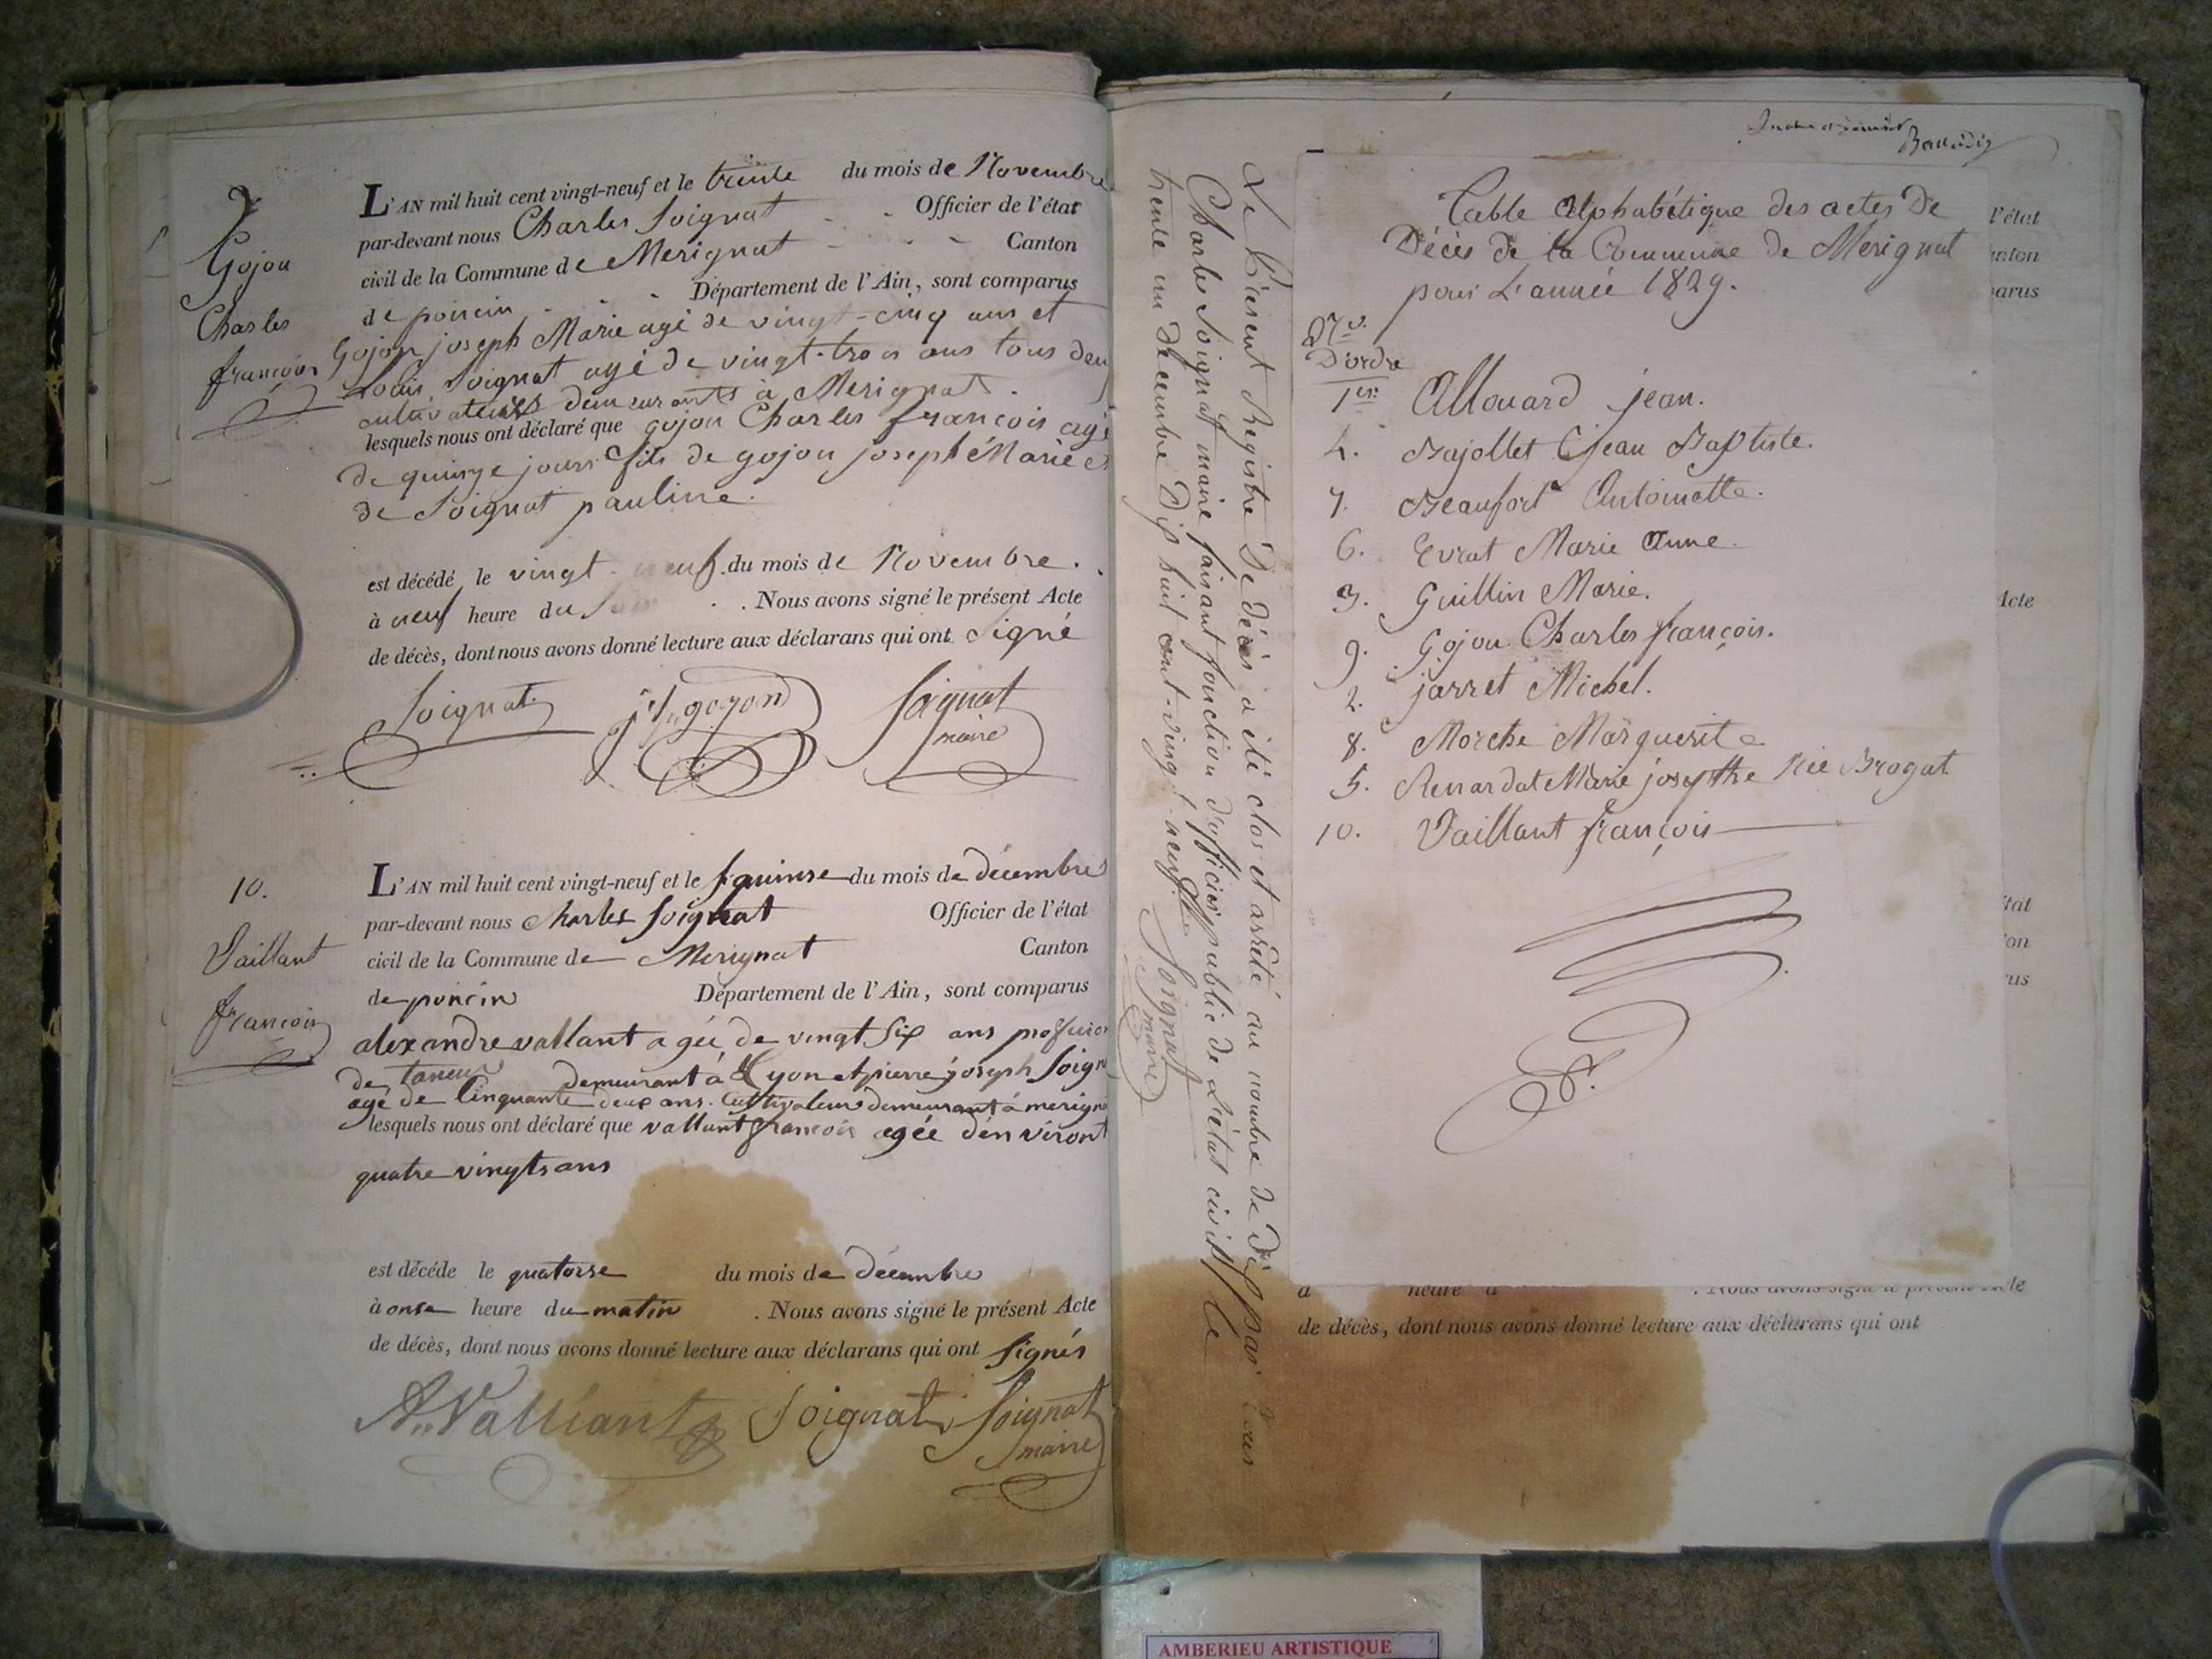 9
Gojou
Charles
françois
L'AN mil huit cent vingt-neuf et le trente du mois de Novembre
par-devant nous Charles Soignat Officier de l'état
civil de la Commune de Merignat Canton
de poncin Département de l'Ain, sont comparus
Gojou joseph Marie agé de vingt-cinq ans et
Louis Soignat agé de vingt-trois ans tous deux
cultivateurs demeurants à Merignat.
lesquels nous ont déclaré que gojou Charles françois agé
de quinze jours fils de gojou joseph Marie et
de Soignat pauline.
est décédé le vingt-neuf du mois de Novembre.
à neuf heure du soir. Nous avons signé le présent Acte
de décès, dont nous avons donné lecture aux déclarans qui ont signé
Soignat gojon Soignat
maire
10.
Vaillant
françois
L'AN mil huit cent vingt-neuf et le quinse du mois de décembre
par-devant nous charles Soignat Officier de l'état
civil de la Commune de Merignat Canton
de poncin Département de l'Ain, sont comparus
alexandre vallant agée de vingt six ans profession
de taneur demeurant à Lyon et pierre joseph Soignat
agé de Cinquante deux ans. Cultivateur demeurant à merignat
lesquels nous ont déclaré que vallant françois agée d'en viront
quatre vingts ans
est décédé le quatorse du mois de décembre
à onse heure du matin. Nous avons signé le présent Acte
de décès, dont nous avons donné lecture aux déclarans qui ont signés
A. Valliant Soignat Soignat
maire
Le Présent Registre De Décès a été clos et arrêté au nombre de Dix par nous
Charle Soignat maire faisant fonction d'officier public de L'état civil le
trente un Décembre Dix huit cent-vingt-neuf.
Soignat
maire
Table Alphabétique des actes De
Décès de la Commune de Merignat
pour L'année 1829.
Nos.
D'ordre
1er. Allouard jean.
4. Bajollet Jean Baptiste.
7. Beaufort Antoinette.
6. Evrat Marie Anne.
3. Guillin Marie.
9. Gojou Charles françois.
2. jarret Michel.
8. Morche Marguerite
5. Renardat Marie josephte Née Brogat
10. Vaillant françois
l'état
anton
arus
Acte
état
on
us
à heure d . Nous avons signé le présent Acte
de décès, dont nous avons donné lecture aux déclarans qui ont
AMBERIEU ARTISTIQUE